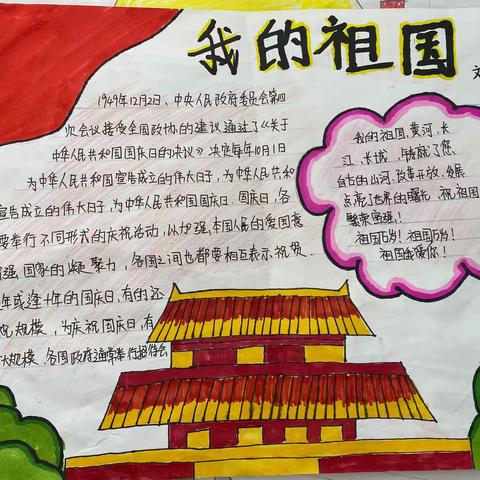 我的祖国
1949年12月2日，中央人民政府委员会第四
次会议接受全国政协的建议通过了《关于
中华人民共和国国庆日的决议》决定每年10月1日
为中华人民共和国宣告成立的伟大日子，为中华人民共和
宣告成立的伟大日子，为中华人民共和国国庆日。国庆日，各
要举行不同形式的庆祝活动，以加强本国人民的爱国意
增强国家的凝聚力，各国之间也都要相互表示祝贺．
年或逢十年的国庆日，有的还
祝规模，为庆祝国庆日，有
大规模．各国政府通常举行招待会
我的祖国，黄河、长
江、长城，铸就了您
自古的山河，改革开放，发展
点亮了世界的曙光，祝祖国
繁荣富强！
祖国万岁！祖国万岁！
祖国我爱你！